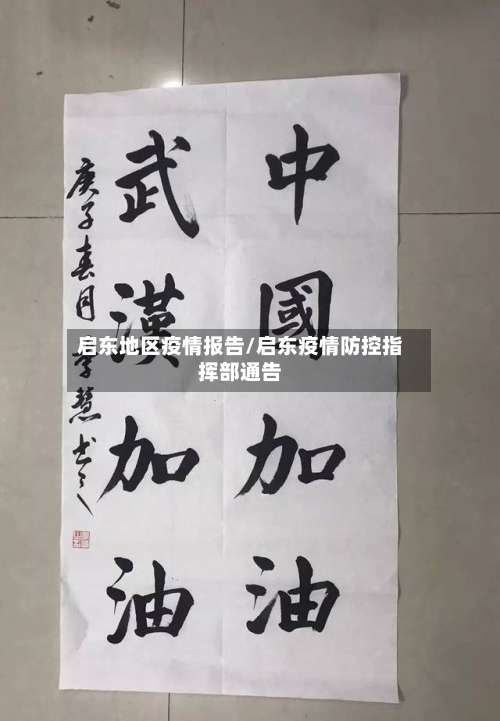 中國加油
武漢加油
庚子春月學慧书之
启东地区疫情报告/启东疫情防控指
挥部通告